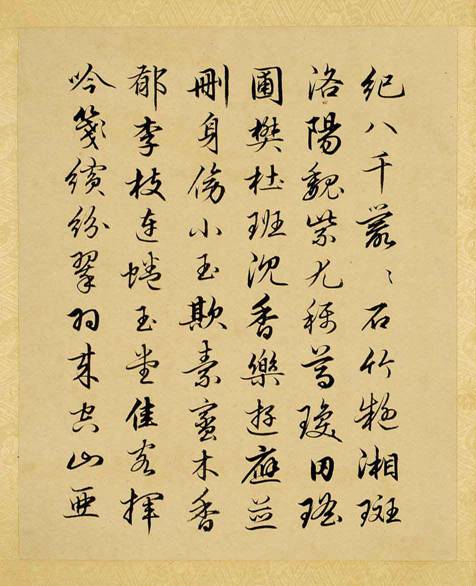 紀八千叢〻石竹艷湘斑
洛陽魏紫尤稱尊瓊田瑤
圃樊杜班沉香樂遊庭並
刪身傍小玉欺素蜜木香
郁李枝連蜷玉堂佳客揮
吟箋繽紛翠羽來空山亞